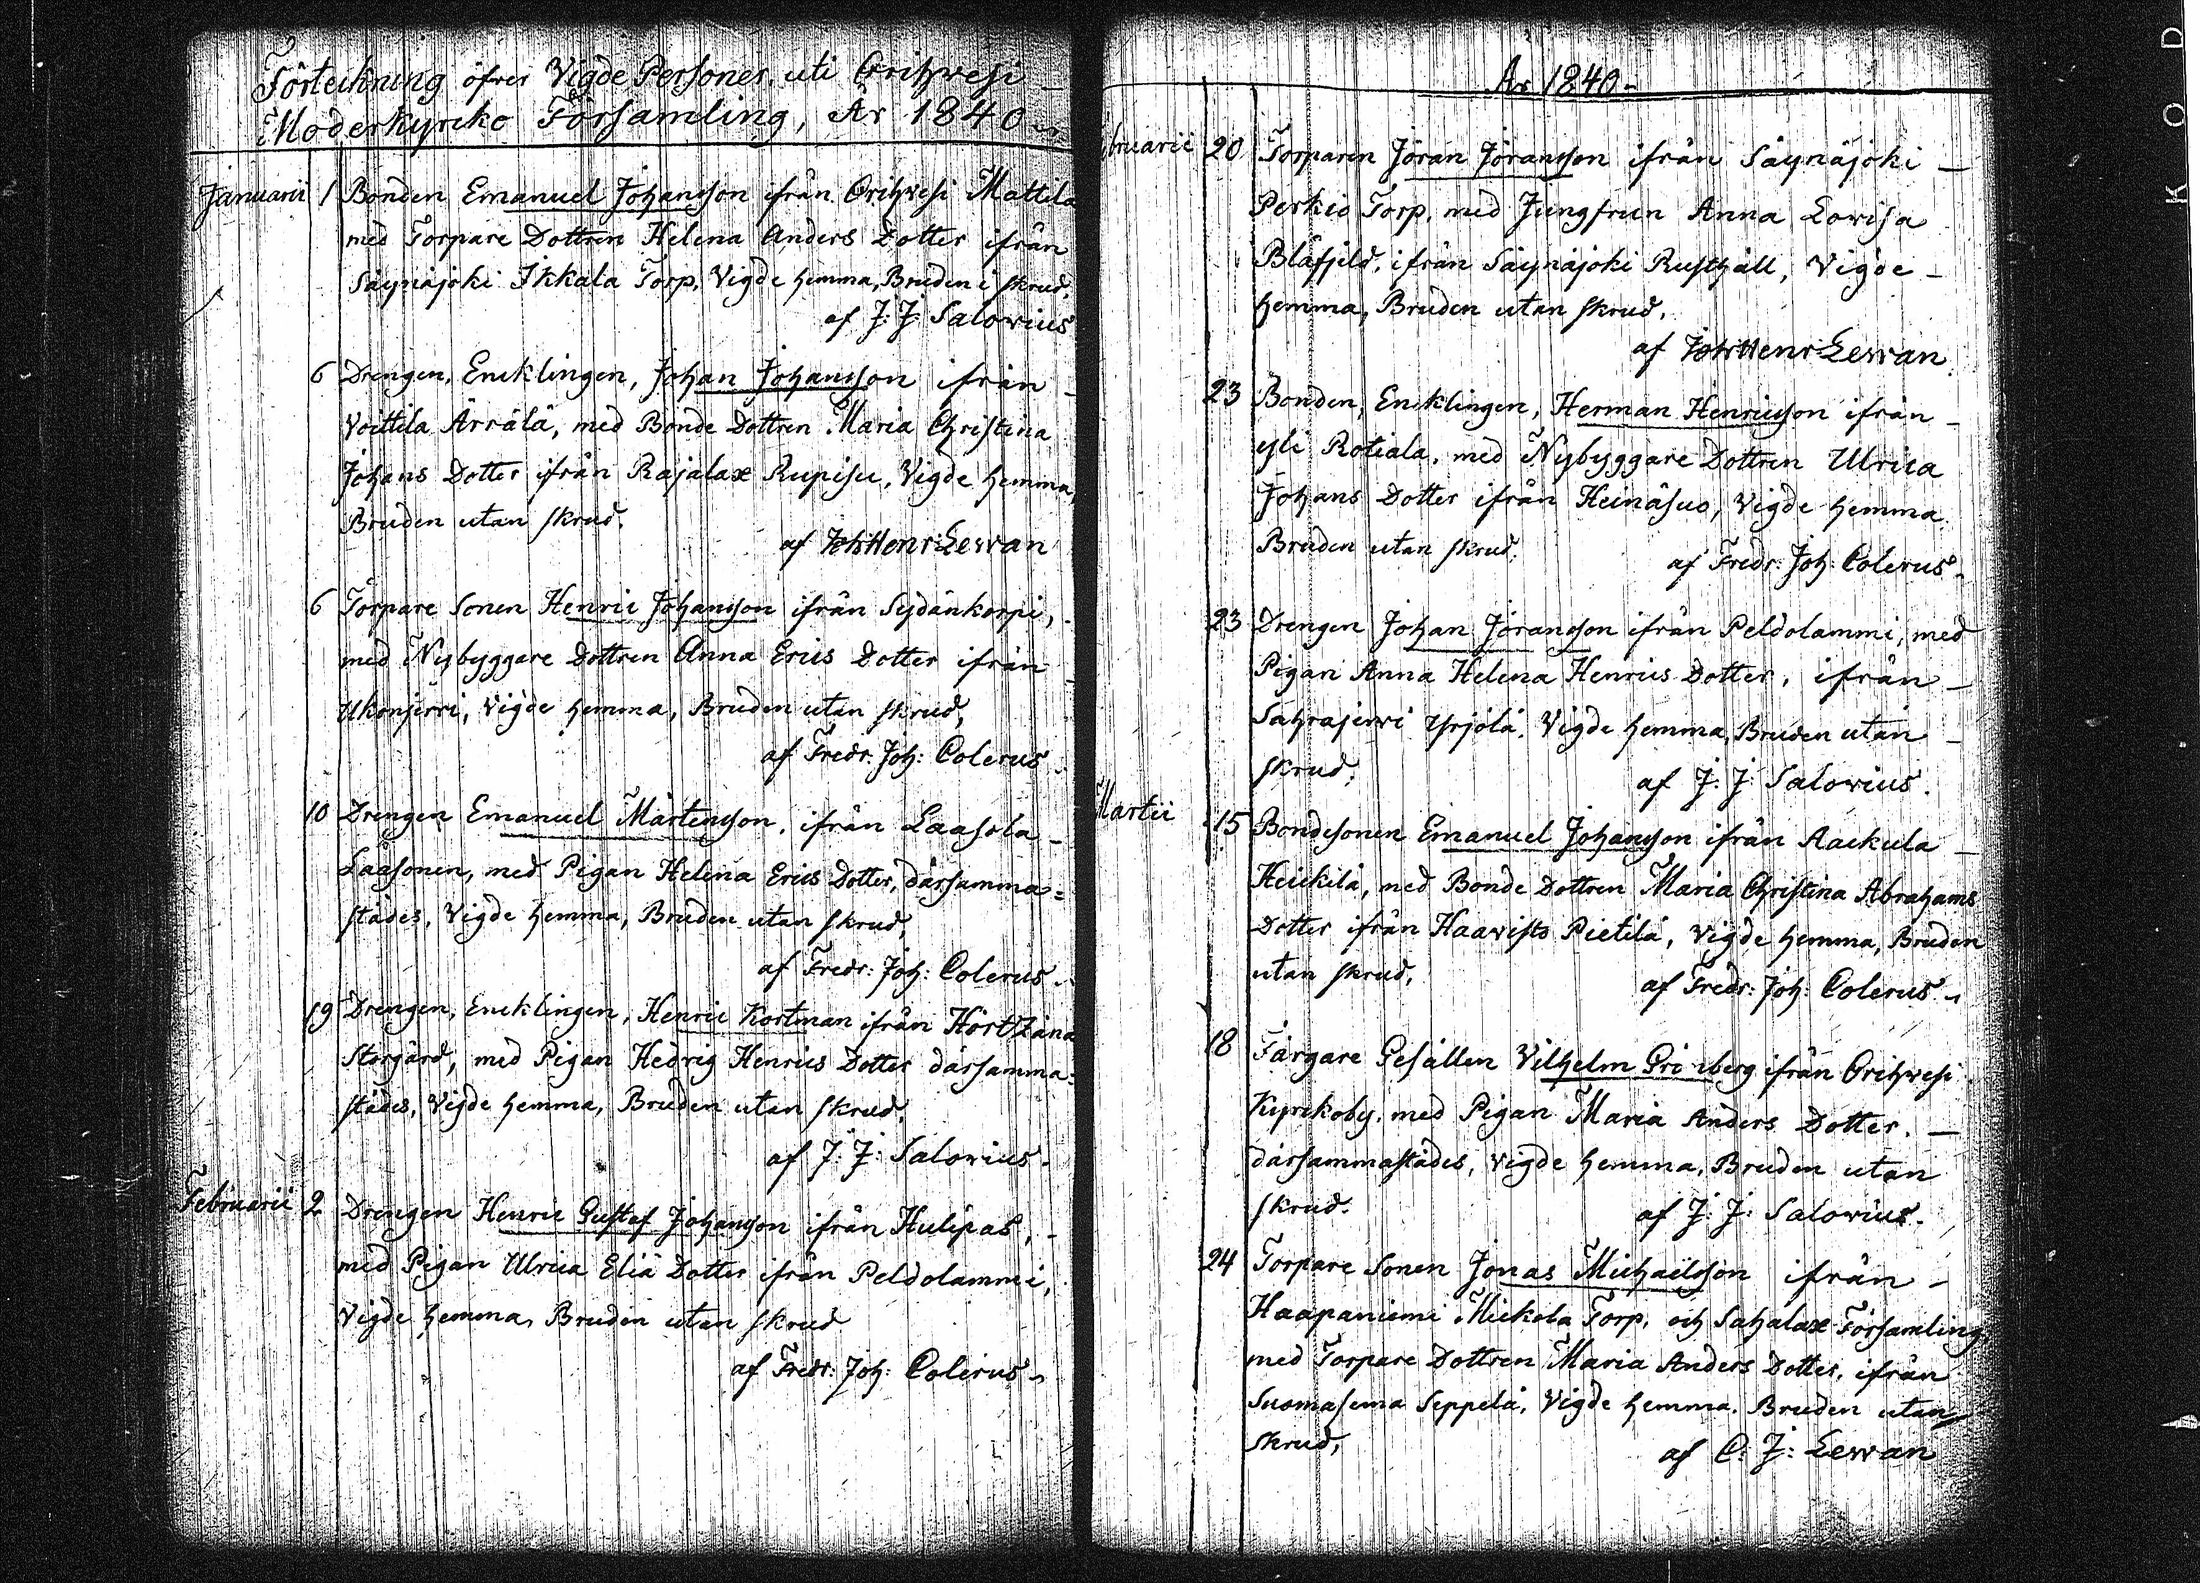 Förteckning öfver Vigde Personer, uti Orihwesi
Moderkyrcko Församling, År 1840
Januarii 1 Bonden Emanuel Johansson ifrån Orihwesi Mattila
med Torpare Dottren Helena Anders Dotter ifrån
Säynäjoki Ikkala Torp, Vigde hemma, Bruden i skrud,
af J: J: Salovius
6 Drengen, Encklingen, Johan Johansson ifrån
Voittila Ärrälä, med Bonde Dottren Maria Christina
Johans Dotter ifrån Rajalax Rupisu, Vigde hemma,
Bruden utan skrud.
af Joh: Henr: Lewan
6 Torpare Sonen Henric Johansson ifrån Sydänkorpi,
med Nybyggare Dottren Anna Erics Dotter ifrån
Ukonjerri, Vigde hemma, Bruden utan skrud,
af Fredr: Joh: Colerus
10 Drengen Emanuel Mårtensson, ifrån Laasola
Laasonen, med Pigan Helena Erics Dotter, därsamma=
städes, Vigde hemma, Bruden utan skrud,
af Fredr: Joh: Colerus
19 Drengen, Encklingen, Henric Kortman ifrån Hörtzänä
Storgård, med Pigan Hedvig Henrics Dotter därsamma=
städes, Vigde hemma, Bruden utan skrud,
af J: J: Salovius.
Februarii 2 Drengen Henric Gustaf Johansson ifrån Hulipas,
med Pigan Ulrica Eliä Dotter ifrån Peldolammi,
Vigde hemma, Bruden utan skrud
af Fredr: Joh: Colerus
År 1840
bruarii 20 Torparen Jöran Jöransson ifrån Säynäjoki
Perkiö Torp, med Jungfrun Anna Lovisa
Blåfjeld, ifrån Säynäjoki Rusthåll, Vigde
hemma, Bruden utan skrud,
af Joh: Henr: Lewan
23 Bonden, Encklingen, Herman Henricsson ifrån
Yli Rotiala, med Nybyggare Dottren Ulrica
Johans Dotter ifrån Heinäsuo, Vigde hemma
Bruden utan skrud.
af Fredr: Joh: Colerus
23 Drengen Johan Jöransson ifrån Peldolammi, med
Pigan Anna Helena Henrics Dotter, ifrån
Sahrajerwi Yrjölä, Vigde hemma, Bruden utan
skrud,
af J: J: Salovius.
Martii 15 Bondesonen Emanuel Johansson ifrån Aackula
Heickilä, med Bonde Dottren Maria Christina Abrahams
Dotter ifrån Haavisto Pietilä, Vigde hemma, Bruden
utan skrud,
af Fredr: Joh: Colerus
18 Färgare Gesällen Vilhelm ifrån Orihwesi
Kyrckoby, med Pigan Maria Anders Dotter.
därsammastädes, Vigde hemma, Bruden utan
skrud.
af J: J: Salovius.
24 Torpare Sonen Jonas Michaelsson ifrån
Haapaniemi Mickola Torp, och Sahalax Församling,
med Torpare Dottren Maria Anders Dotter, ifrån
Suomasema Seppelä, Vigde hemma, Bruden utan
skrud,
af C: J: Lewan
K O D